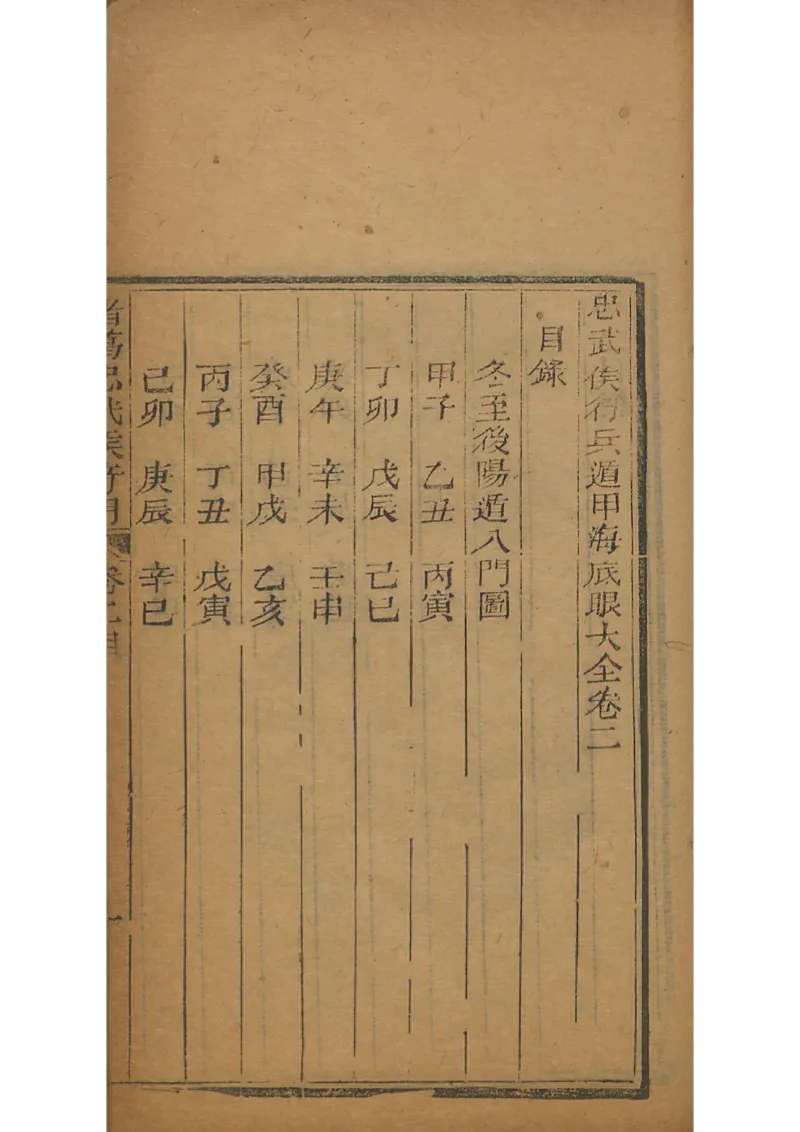 忠武侯行兵遁甲海底眼大全卷二
目錄
冬至後陽遁八門圖
甲子 乙丑 丙寅
丁卯 戊辰 己巳
庚午 辛未 壬申
癸酉 甲戌 乙亥
丙子 丁丑 戊寅
己卯 庚辰 辛巳
葛忠武侯行 卷二目 一